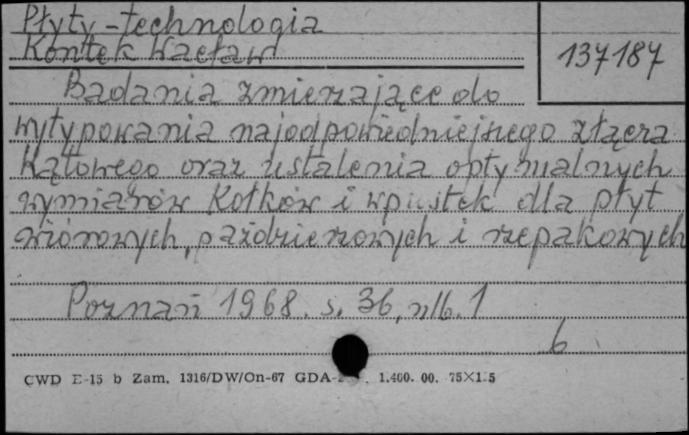 Płyty-technologia
Kontek Wacław
137187
Badania zmierzające do
wytypowania najodpowiedniejszego złącza
kątowego oraz ustalenia optymalnych
wymiarów kołków i wpustek dla płyt
wiórowych, paździerzowych i rzepakowych
Poznań 1968. s. 36, nlb. 1
6
CWD E-15 b Zam. 1316/DW/On-67 GDA- 1.400. 00. 75X1 5